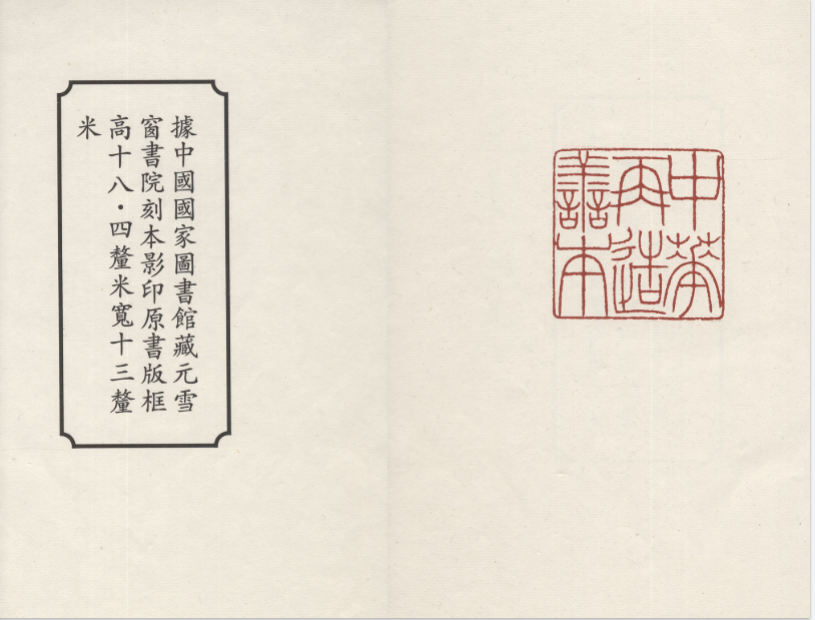 中華
再造
善本
據中國國家圖書館藏元雪
窗書院刻本影印原書版框
高十八·四釐米寬十三釐
米